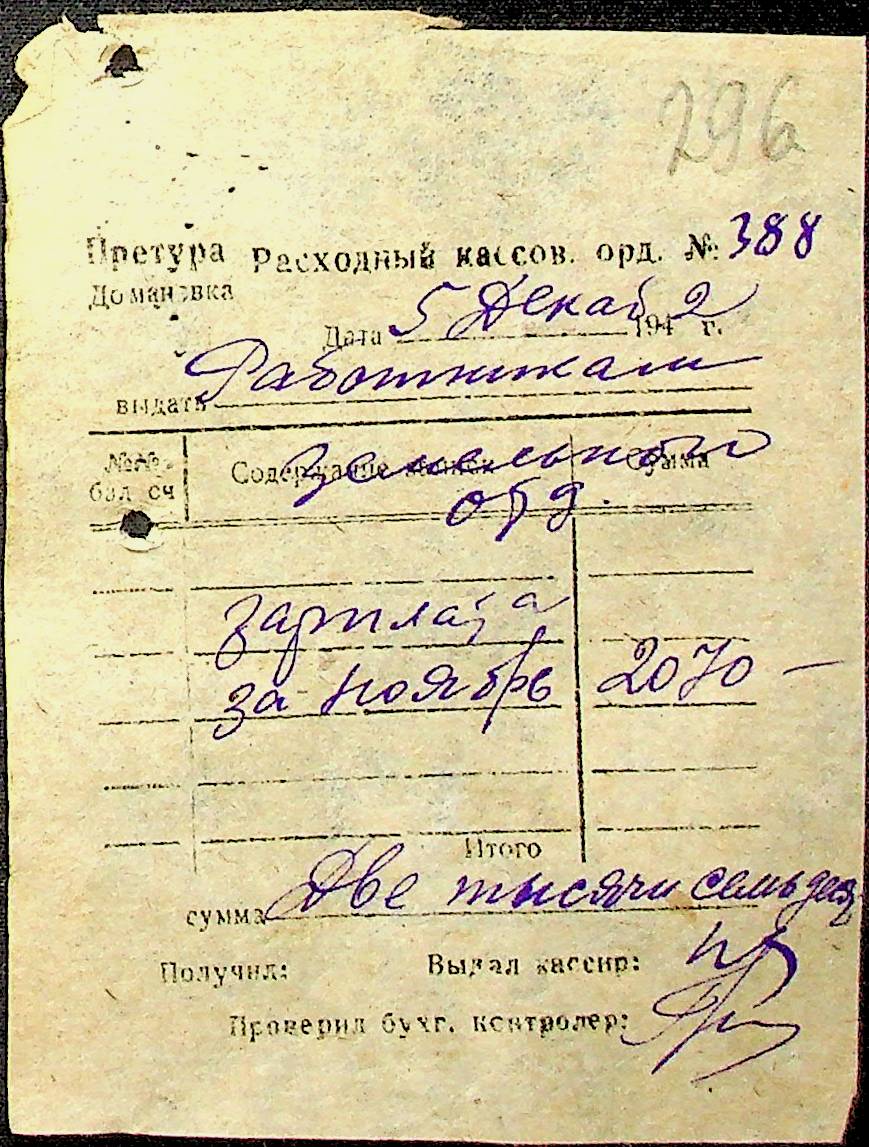 296
Претура Расходный кассов. орд. № 388
Домановка
Дата 5 Декаб 1942 г.
выдать Работникам
№№ бал сч Содержание Сумма
земельного
отд.
зарплата
за ноябрь 2070 —
Итого
сумма Две тысячи семьдеся
Получил: Выдал кассир:
Проверил бухг. контролер: